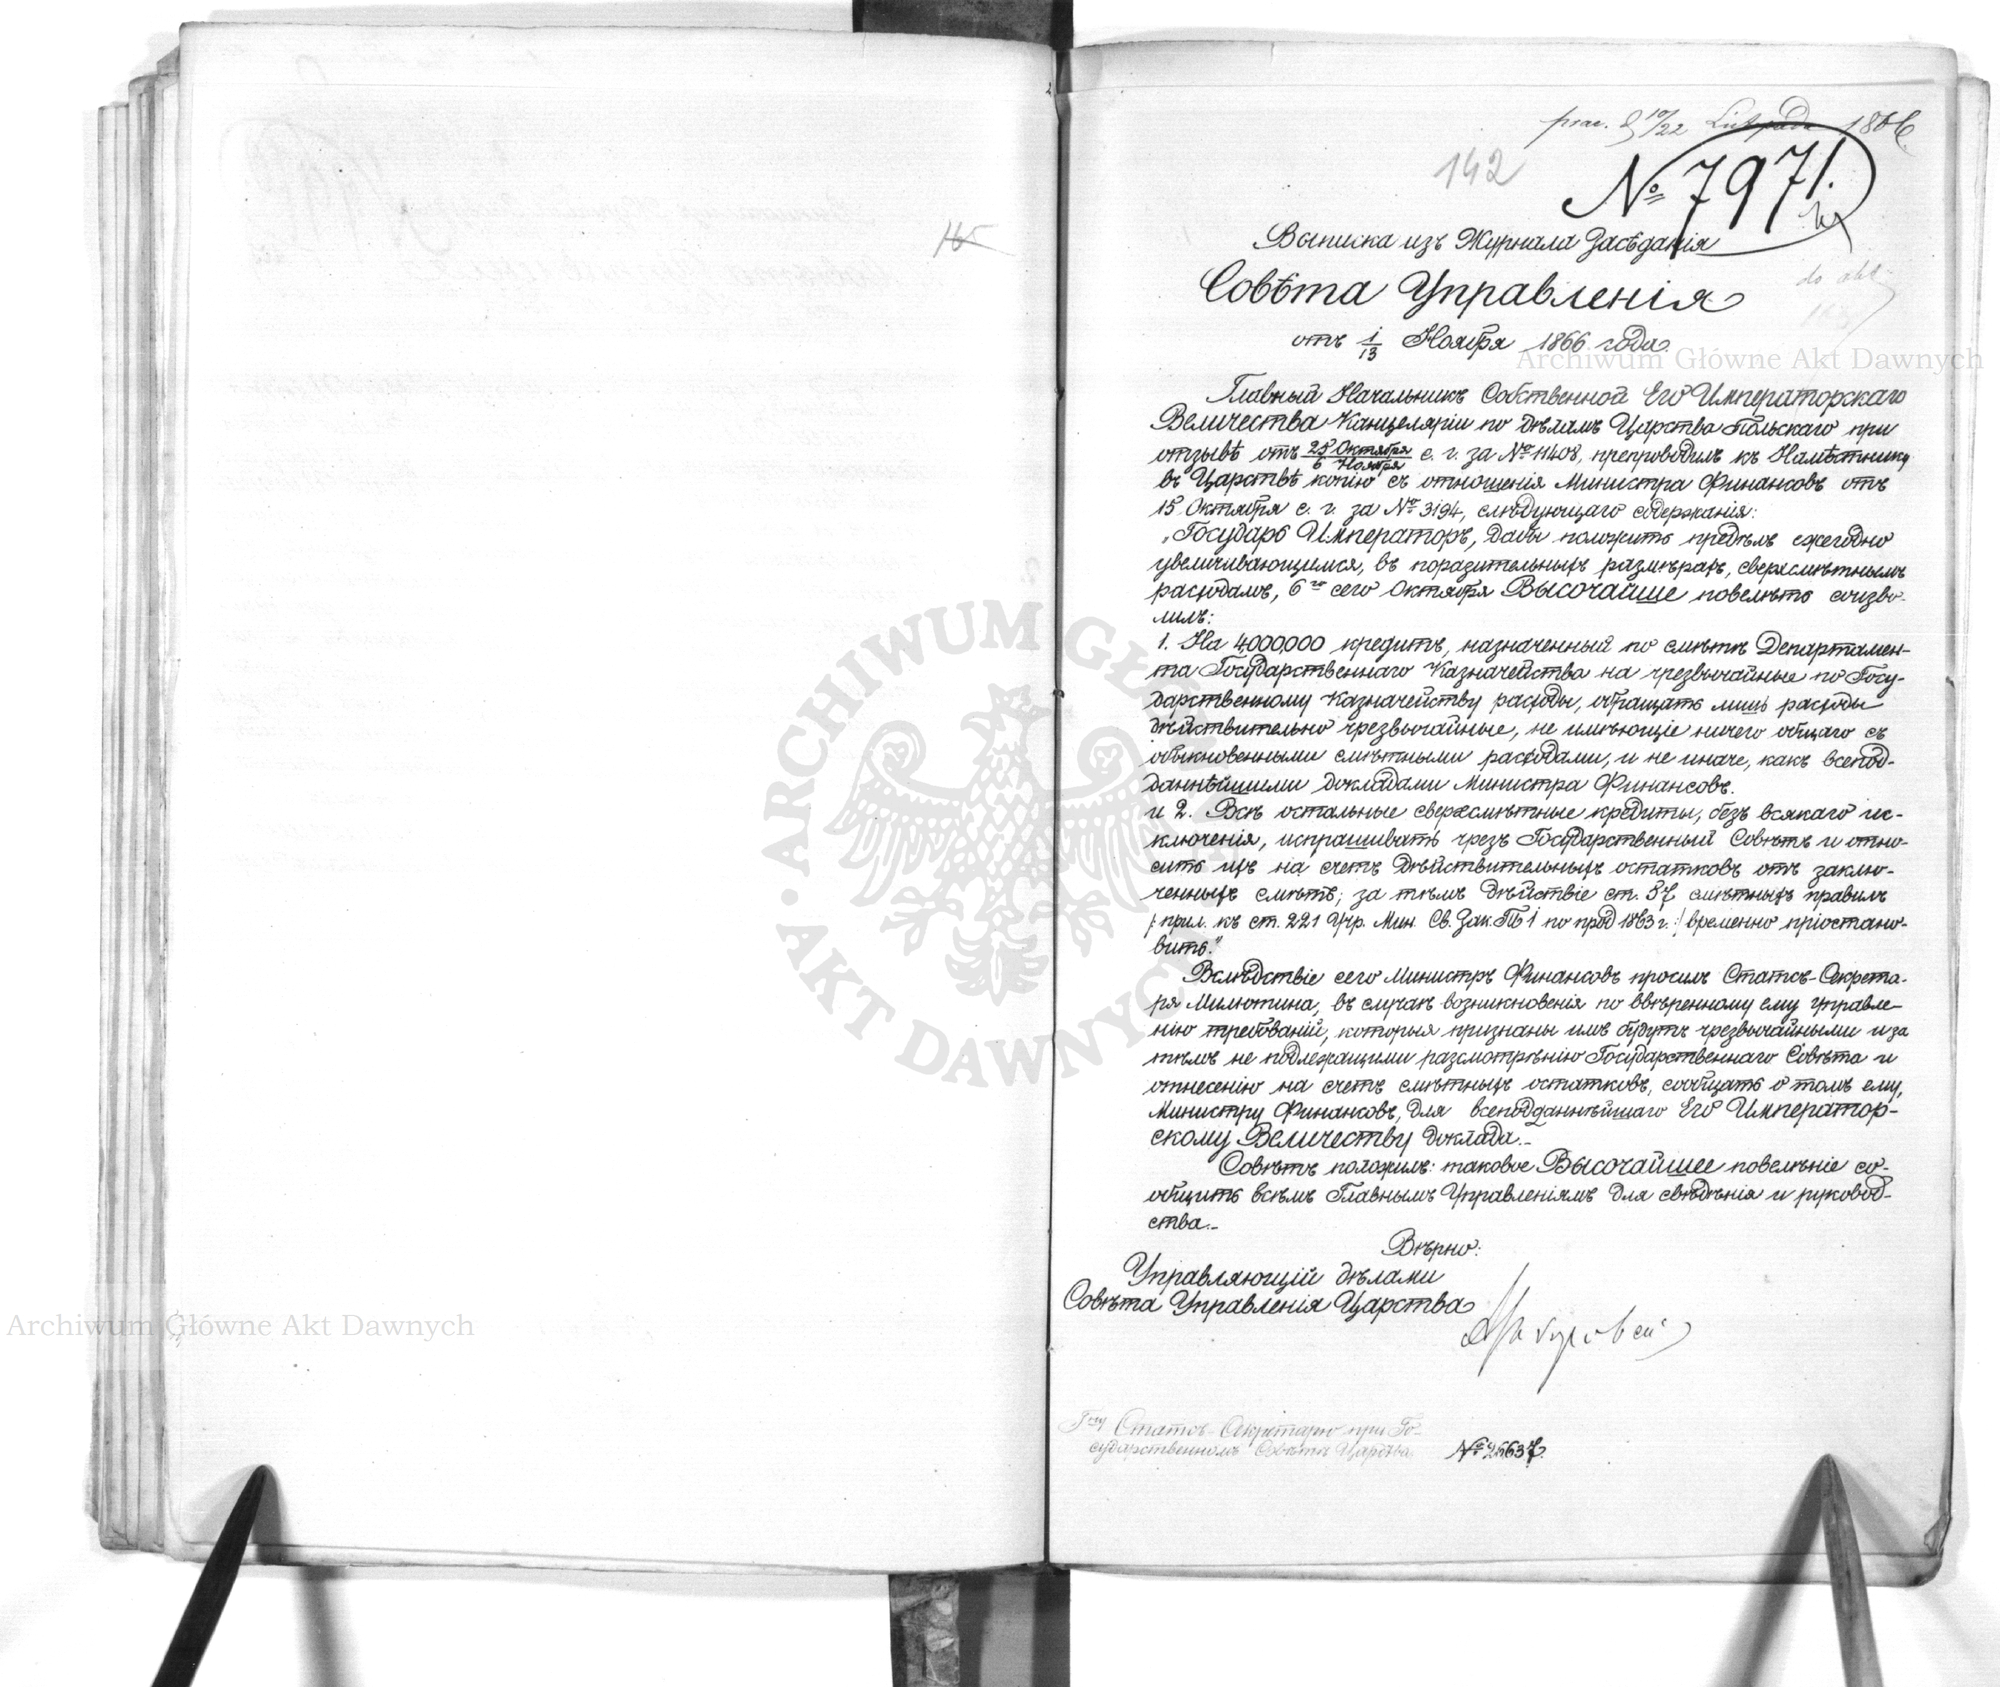 165
prac. d 10/22 Listopada 1866
142
№ 7971.
Выписка изъ Журнала Засѣданія
Совѣта Управленія
do akt
отъ 1/13 Ноября 1866 года.
Archiwum Główne Akt Dawnych
Главный Начальникъ Собственной Его Императорскаго
Величества Канцеляріи по дѣламъ Царства Польскаго при
отзывѣ отъ 25 Октября/6 Ноября с. г. за № 11408, препроводилъ къ Намѣстнику
въ Царствѣ копію съ отношенія Министра Финансовъ отъ
15 Октября с. г. за № 3194, слѣдующаго содержанія:
„Государь Императоръ, дабы положить предѣлъ ежегодно
увеличивающимся, въ поразительныхъ размѣрахъ, сверхсмѣтнымъ
расходамъ, 6го сего Октября Высочайше повелѣть соизво-
лилъ:
1. На 4,000,000 кредитъ, назначенный по смѣтѣ Департамен-
та Государственнаго Казначейства на чрезвычайные по Госу-
дарственному Казначейству расходы, обращать лишь расходы
дѣйствительно чрезвычайные, не имѣющіе ничего общаго съ
обыкновенными смѣтными расходами, и не иначе, какъ всепод-
даннѣйшими докладами Министра Финансовъ.
и 2. Всѣ остальные сверхсмѣтные кредиты, безъ всякаго ис-
ключенія, испрашивать чрезъ Государственный Совѣтъ и отно-
сить ихъ на счетъ дѣйствительныхъ остатковъ отъ заклю-
ченныхъ смѣтъ; за тѣмъ дѣйствіе ст. 37 смѣтныхъ правилъ
/: прил. къ ст. 221 Учр. Мин. Св. Зак. Т. I по прод 1863 г. :/ временно пріостано-
вить."
Вслѣдствіе сего Министръ Финансовъ просилъ Статсъ-Секрета-
ря Милютина, въ случаѣ возникновенія по ввѣренному ему управле-
нію требованій, которыя признаны имъ будутъ чрезвычайными и за
тѣмъ не подлежащими разсмотрѣнію Государственнаго Совѣта и
отнесенію на счетъ смѣтныхъ остатковъ, сообщать о томъ ему,
Министру Финансовъ, для всеподданнѣйшаго Его Император-
скому Величеству доклада.-
Совѣтъ положилъ: таковое Высочайшее повелѣніе со-
общить всѣмъ Главнымъ Управленіямъ для свѣдѣнія и руковод-
ства.-
Вѣрно:
Управляющій дѣлами
Совѣта Управленія Царства
Гну Статсъ-Секретарю при Го-
сударственномъ Совѣтѣ Царства
№ 26637.
Archiwum Główne Akt Dawnych
ARCHIWUM GŁÓWNE · AKT DAWNYCH ·